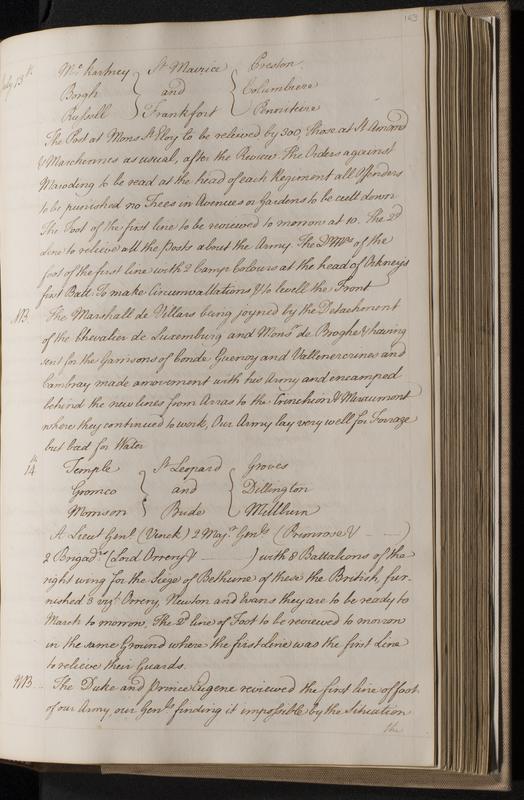 163
July 13th Mc Kartney St Maurice Preston
Borgh and Columbiere
Russell Frankfort Penniteire
The Post at Mons St Eloy to be relieved by 300, those at St Amand
& Marchennes as usual, after the Review. The Orders against
Maroding to be read at the head of each Regiment all Offenders
to be punished no Trees in Avenues or Gardens to be cutt down
The Foot of the first line to be reviewed to morrow at 10. The 2d
line to relieve all the Posts about the Army. The Qr Mrs of the
foot of the first line with 2 Camp Colours at the head of Orkney's
first Batt. To make Circumvallations & to levell the Front
NB The Marshall de Villars being joyned by the Detachment
of the Chevalier de Luxemburg and Monsr de Broghe & having
sent for the Garrisons of Conde Quenoy and Vallencennes and
Cambray made a movement with his Army and encamped
behind the new lines from Arras to the & Miraumont
where they continued to work, Our Army lay very well for Forrage
but bad for Water
14th Temple St Leopard Groves
Gromco and Dillington
Morrison Bude Millburn
A Lieut Genl (Vinck) 2 Majr Genls (Primrose & — )
2 Brigadrs (Lord Orrery & — ) with 8 Battalions of the
right wing for the Siege of Bethune of these the British, fur-
nished 3 vizt Orrery, Newton and Evans they are to be ready to
March to morrow. The 2d line of Foot to be reviewed to morrow
in the same Ground where the first Line was the first Line
to relieve their Guards.
NB The Duke and Prince Eugene reviewed the first line of foot
of our Army, our Genls finding it impossible by the Situation
the